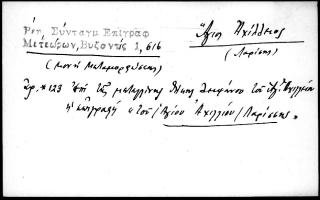 Ρεη, Σύνταγμ Επιγραφ
Μετεώρων, Βυζαντίς 1, 616
Ἅγιος Ἀχίλλειος
(Λαρίσης)
(Μονή Μεταμορφώσεως)
ἀρ. 123 Ἐπί τῆς μεταλλίνης θήκης
ἡ ἐπιγραφή « τοῦ / Ἁγίου Ἀχιλλίου / Λαρίσσης »